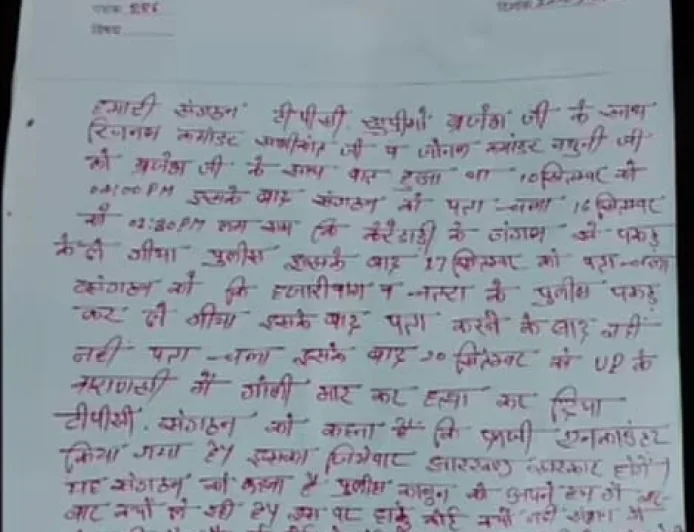 पत्रांक 226
दिनांक
विषय
हमारी संगठन टीपीसी. सुप्रीमो ब्रजेश जी के साथ
रिजनल कमांडर शशीकांत जी व जोनल कमांडर नथुनी जी
को ब्रजेश जी के साथ बात हुआ था 10 सितम्बर को
04:00 PM इसके बाद संगठन को पता चला 16 सितम्बर
को 02:30PM लग भग कि केरेडाडी के जंगल से पकड़
के ले गीया पुलीस इसके बाद 17 सितम्बर को पता चला
संगठन को कि हजारीबाग व चतरा के पुलीस पकड़
कर ले गीया इसके बाद पता करने के बाद नहीं
नहीं पता चला इसके बाद 20 सितम्बर को UP के
में गोली मार कर हत्या कर दिया
टीपीसी. संगठन को कहना है कि फर्जी एनकाउंटर
किया गया है। इसका जिमेवार झारखण्ड सरकार होगें।
यह संगठन को कहना है पुलीस कानून को अपने हाथ में
बार क्यों ले रही है। इस पर हाई कोर्ट क्यों नहीं